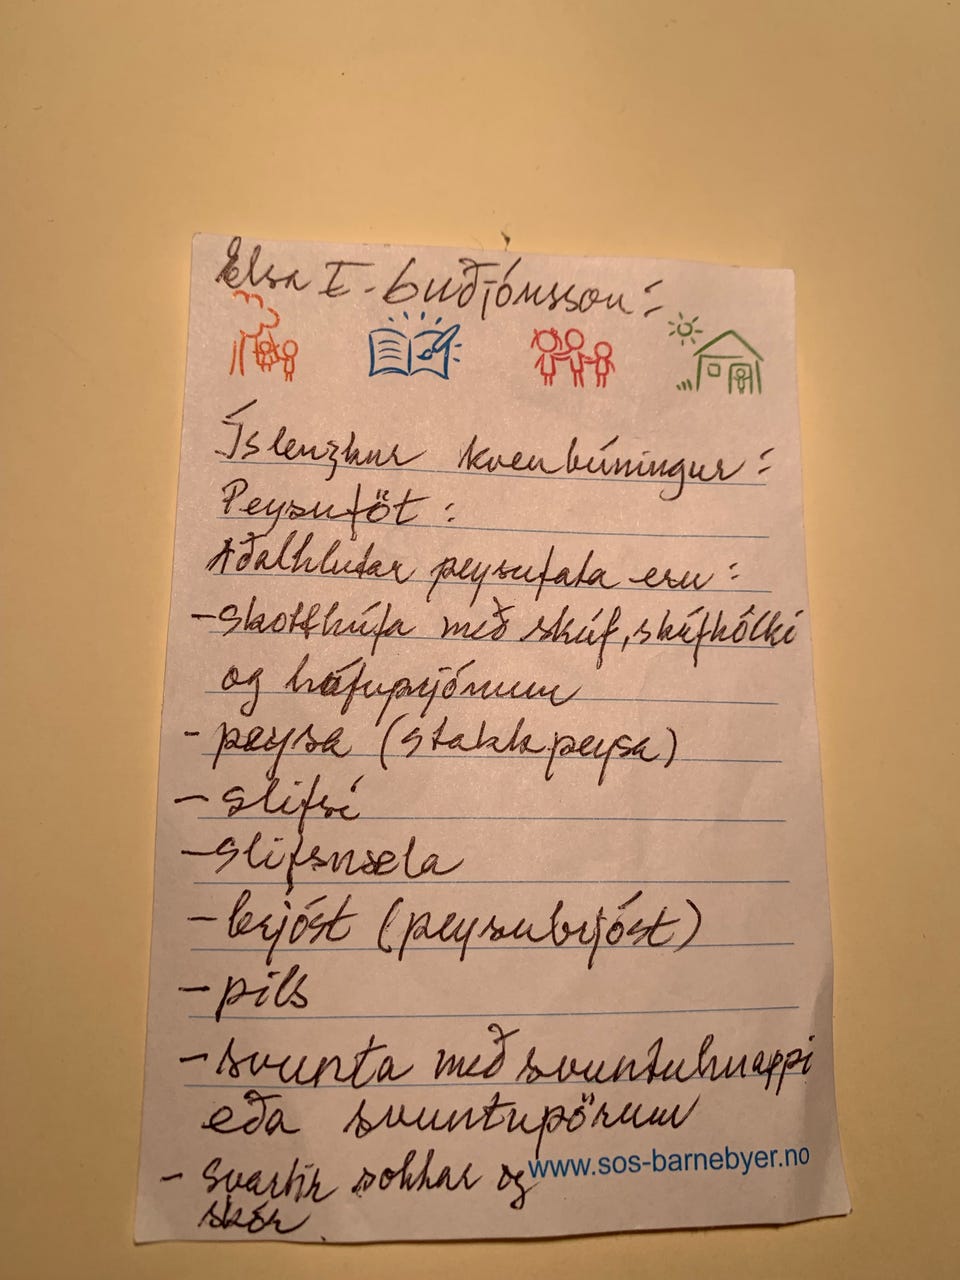 Elsa E. Guðjónsson:
Íslenzkur kvenbúningur:
Peysuföt:
Aðalhlutar peysufata eru:
- skotthúfa með skúf, skúfhólki
og húfuprjónum
- peysa (stakkpeysa)
- slifsi
- slifsnæla
- brjóst (peysubrjóst)
- pils
- svunta með svuntuhnappi
eða svuntupörum
www.sos-barnebyer.no
- Svartir sokkar og
skór